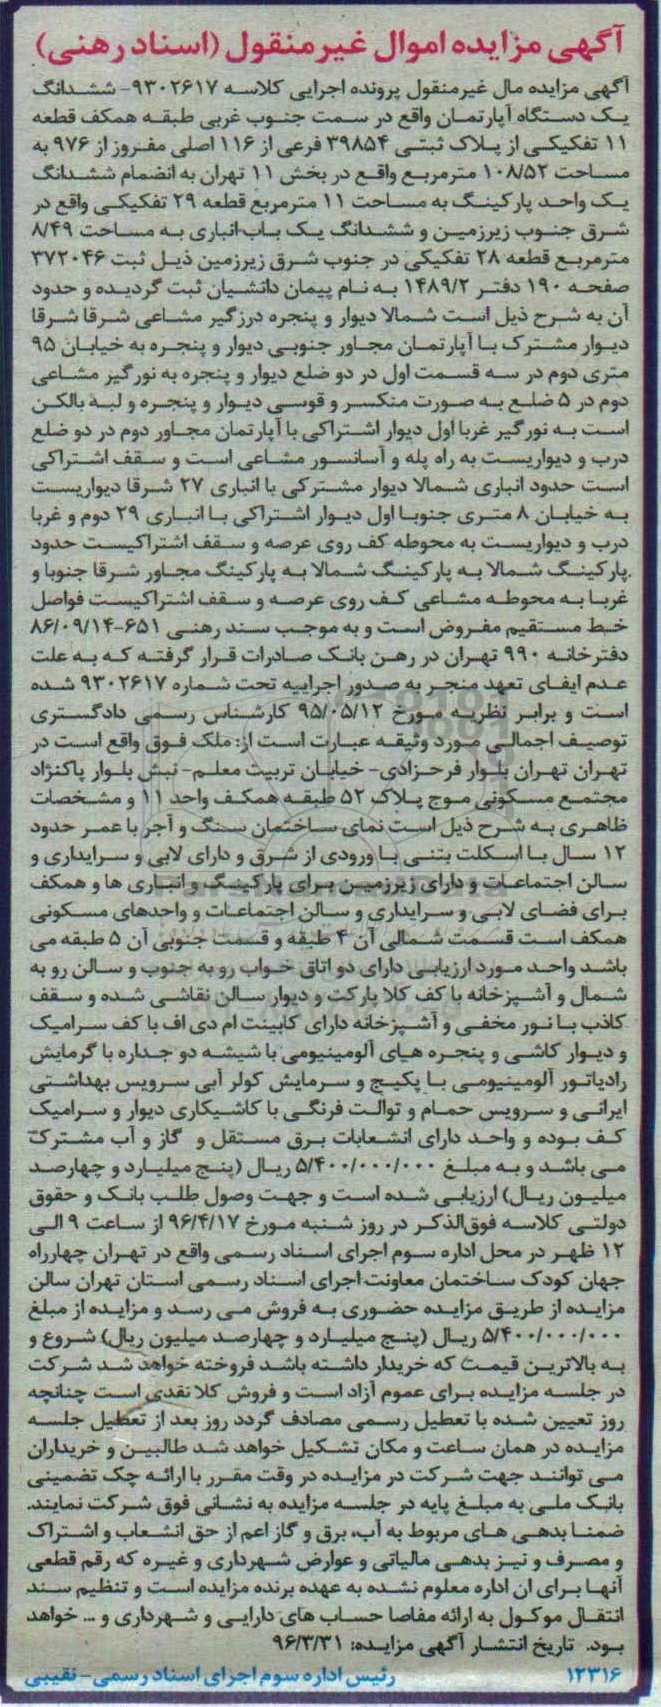 آگهی مزایده اموال غیرمنقول (اسناد رهنی)
آگهی مزایده مال غیرمنقول پرونده اجرایی کلاسه ۹۳۰۲۶۱۷- ششدانگ
یک دستگاه آپارتمان واقع در سمت جنوب غربی طبقه همکف قطعه
۱۱ تفکیکی از پلاک ثبتی ۳۹۸۵۴ فرعی از ۱۱۶ اصلی مفروز از ۹۷۶ به
مساحت ۱۰۸/۵۲ مترمربع واقع در بخش ۱۱ تهران به انضمام ششدانگ
یک واحد پارکینگ به مساحت ۱۱ مترمربع قطعه ۲۹ تفکیکی واقع در
شرق جنوب زیرزمین و ششدانگ یک باب انباری به مساحت ۸/۴۹
مترمربع قطعه ۲۸ تفکیکی در جنوب شرق زیرزمین ذیل ثبت ۳۷۲۰۴۶
صفحه ۱۹۰ دفتر ۱۴۸۹/۲ به نام پیمان دانشیان ثبت گردیده و حدود
آن به شرح ذیل است شمالا دیوار و پنجره درزگیر مشاعی شرقا شرقا
دیوار مشترک با آپارتمان مجاور جنوبی دیوار و پنجره به خیابان ۹۵
متری دوم در سه قسمت اول در دو ضلع دیوار و پنجره به نورگیر مشاعی
دوم در ۵ ضلع به صورت منکسر و قوسی دیوار و پنجره و لبه بالکن
است به نورگیر غربا اول دیوار اشتراکی با آپارتمان مجاور دوم در دو ضلع
درب و دیواریست به راه پله و آسانسور مشاعی است و سقف اشتراکی
است حدود انباری شمالا دیوار مشترکی با انباری ۲۷ شرقا دیواریست
به خیابان ۸ متری جنوبا اول دیوار اشتراکی با انباری ۲۹ دوم و غربا
درب و دیواریست به محوطه کف روی عرصه و سقف اشتراکیست حدود
پارکینگ شمالا به پارکینگ شمالا به پارکینگ مجاور شرقا جنوبا و
غربا به محوطه مشاعی کف روی عرصه و سقف اشتراکیست فواصل
خط مستقیم مفروض است و به موجب سند رهنی ۶۵۱-۸۶/۰۹/۱۴
دفترخانه ۹۹۰ تهران در رهن بانک صادرات قرار گرفته که به علت
عدم ایفای تعهد منجر به صدور اجراییه تحت شماره ۹۳۰۲۶۱۷ شده
است و برابر نظریه مورخ ۹۵/۰۵/۱۲ کارشناس رسمی دادگستری
توصیف اجمالی مورد وثیقه عبارت است از: ملک فوق واقع است در
تهران تهران بلوار فرحزادی- خیابان تربیت معلم- نبش بلوار پاکنژاد
مجتمع مسکونی موج پلاک ۵۲ طبقه همکف واحد ۱۱ و مشخصات
ظاهری به شرح ذیل است نمای ساختمان سنگ و آجر با عمر حدود
۱۲ سال با اسکلت بتنی با ورودی از شرق و دارای لابی و سرایداری و
سالن اجتماعات و دارای زیرزمین برای پارکینگ و انباری ها و همکف
برای فضای لابی و سرایداری و سالن اجتماعات و واحدهای مسکونی
همکف است قسمت شمالی آن ۴ طبقه و قسمت جنوبی آن ۵ طبقه می
باشد واحد مورد ارزیابی دارای دو اتاق خواب رو به جنوب و سالن رو به
شمال و آشپزخانه با کف کلا پارکت و دیوار سالن نقاشی شده و سقف
کاذب با نور مخفی و آشپزخانه دارای کابینت ام دی اف با کف سرامیک
و دیوار کاشی و پنجره های آلومینیومی با شیشه دو جداره با گرمایش
رادیاتور آلومینیومی با پکیج و سرمایش کولر آبی سرویس بهداشتی
ایرانی و سرویس حمام و توالت فرنگی با کاشیکاری دیوار و سرامیک
کف بوده و واحد دارای انشعابات برق مستقل و گاز و آب مشترک
می باشد و به مبلغ ۵/۴۰۰/۰۰۰/۰۰۰ ریال (پنج میلیارد و چهارصد
میلیون ریال) ارزیابی شده است و جهت وصول طلب بانک و حقوق
دولتی کلاسه فوق‌الذکر در روز شنبه مورخ ۹۶/۴/۱۷ از ساعت ۹ الی
۱۲ ظهر در محل اداره سوم اجرای اسناد رسمی واقع در تهران چهارراه
جهان کودک ساختمان معاونت اجرای اسناد رسمی استان تهران سالن
مزایده از طریق مزایده حضوری به فروش می رسد و مزایده از مبلغ
۵/۴۰۰/۰۰۰/۰۰۰ ریال (پنج میلیارد و چهارصد میلیون ریال) شروع و
به بالاترین قیمت که خریدار داشته باشد فروخته خواهد شد شرکت
در جلسه مزایده برای عموم آزاد است و فروش کلا نقدی است چنانچه
روز تعیین شده با تعطیل رسمی مصادف گردد روز بعد از تعطیل جلسه
مزایده در همان ساعت و مکان تشکیل خواهد شد طالبین و خریداران
می توانند جهت شرکت در مزایده در وقت مقرر با ارائه چک تضمینی
بانک ملی به مبلغ پایه در جلسه مزایده به نشانی فوق شرکت نمایند.
ضمنا بدهی های مربوط به آب، برق و گاز اعم از حق انشعاب و اشتراک
و مصرف و نیز بدهی مالیاتی و عوارض شهرداری و غیره که رقم قطعی
آنها برای ان اداره معلوم نشده به عهده برنده مزایده است و تنظیم سند
انتقال موکول به ارائه مفاصا حساب های دارایی و شهرداری و ... خواهد
بود. تاریخ انتشار آگهی مزایده: ۹۶/۳/۳۱
۱۲۳۱۶ رئیس اداره سوم اجرای اسناد رسمی- نقیبی